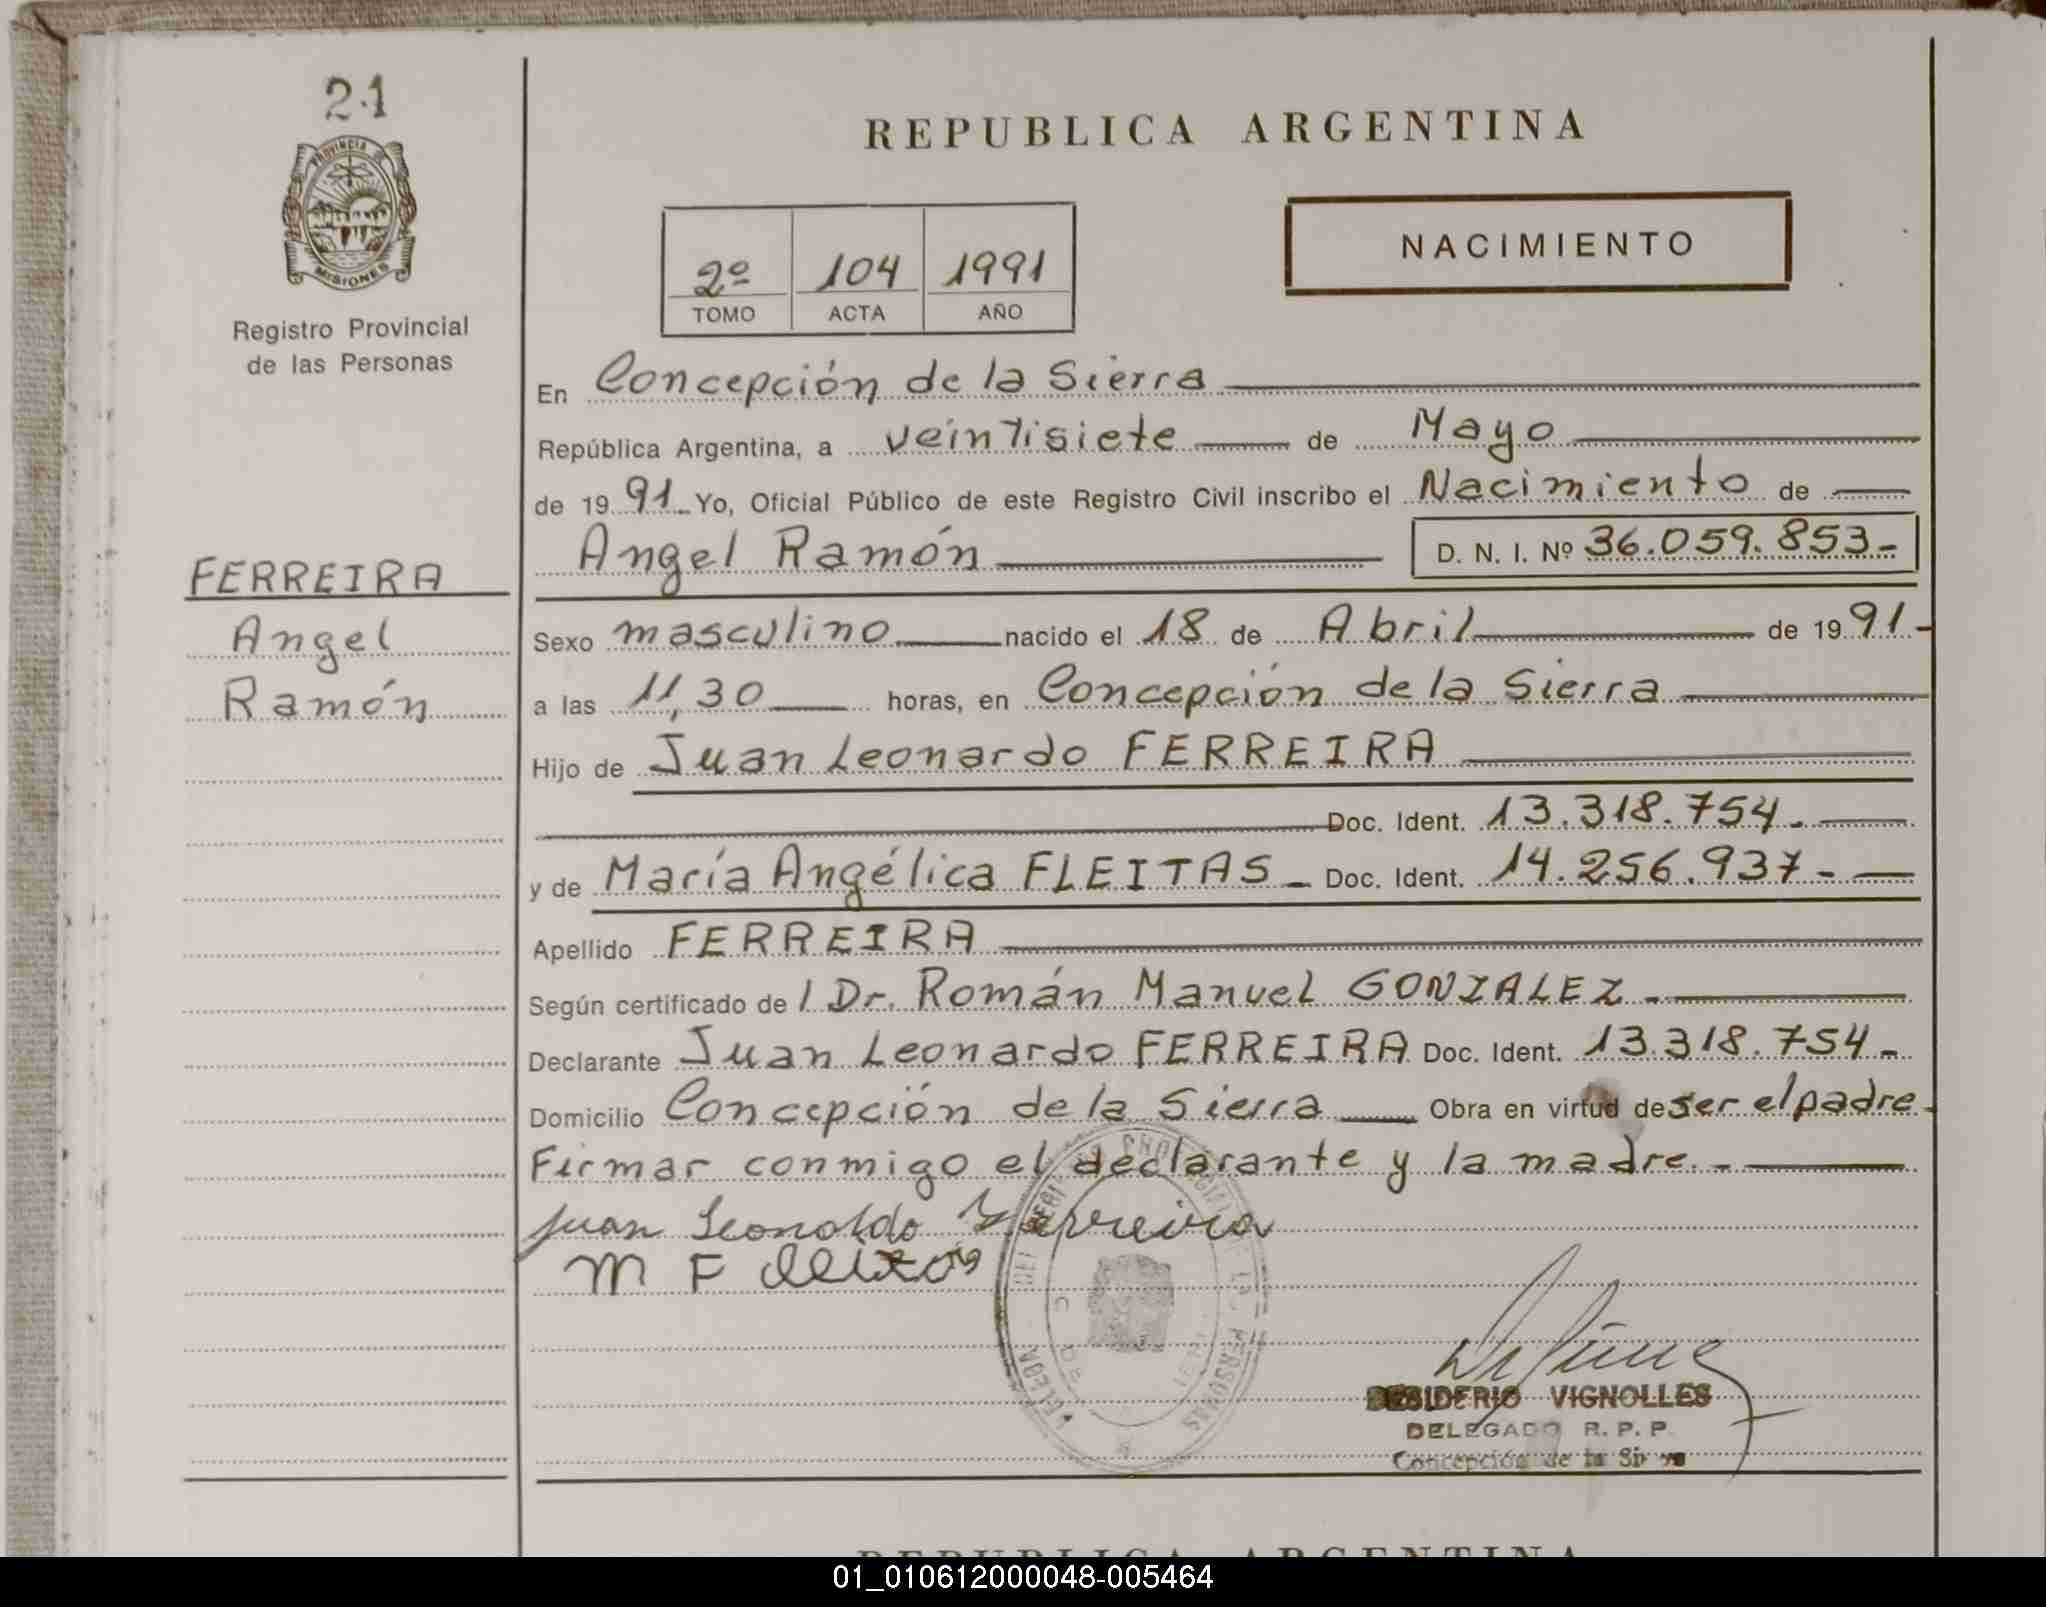 21
PROVINCIA DE
MISIONES
Registro Provincial
de las Personas
FERREIRA
Angel
Ramón
REPUBLICA ARGENTINA
2º 104 1991
TOMO ACTA AÑO
NACIMIENTO
En Concepción de la Sierra
República Argentina, a veintisiete de Mayo
de 19 91 Yo, Oficial Público de este Registro Civil inscribo el Nacimiento de
Angel Ramón D. N. I. Nº 36.059.853-
Sexo masculino nacido el 18 de Abril de 19 91-
a las 11,30 horas, en Concepción de la Sierra
Hijo de Juan Leonardo FERREIRA
Doc. Ident. 13.318.754.
y de María Angélica FLEITAS - Doc. Ident. 14.256.937-
Apellido FERREIRA
Según certificado de l Dr. Román Manuel GONZALEZ -
Declarante Juan Leonardo FERREIRA Doc. Ident. 13.318.754-
Domicilio Concepción de la Sierra Obra en virtud de ser el padre-
Firmar conmigo el declarante y la madre.-
Juan Leonaldo Ferreira
M F
DESIDERIO VIGNOLLES
DELEGADO R. P. P.
Concepción de la
REPUBLICA ARGENTINA
01_010612000048-005464